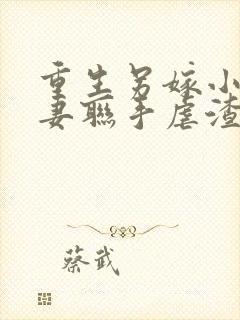 重生另嫁小
妻联手虐渣
蔡武